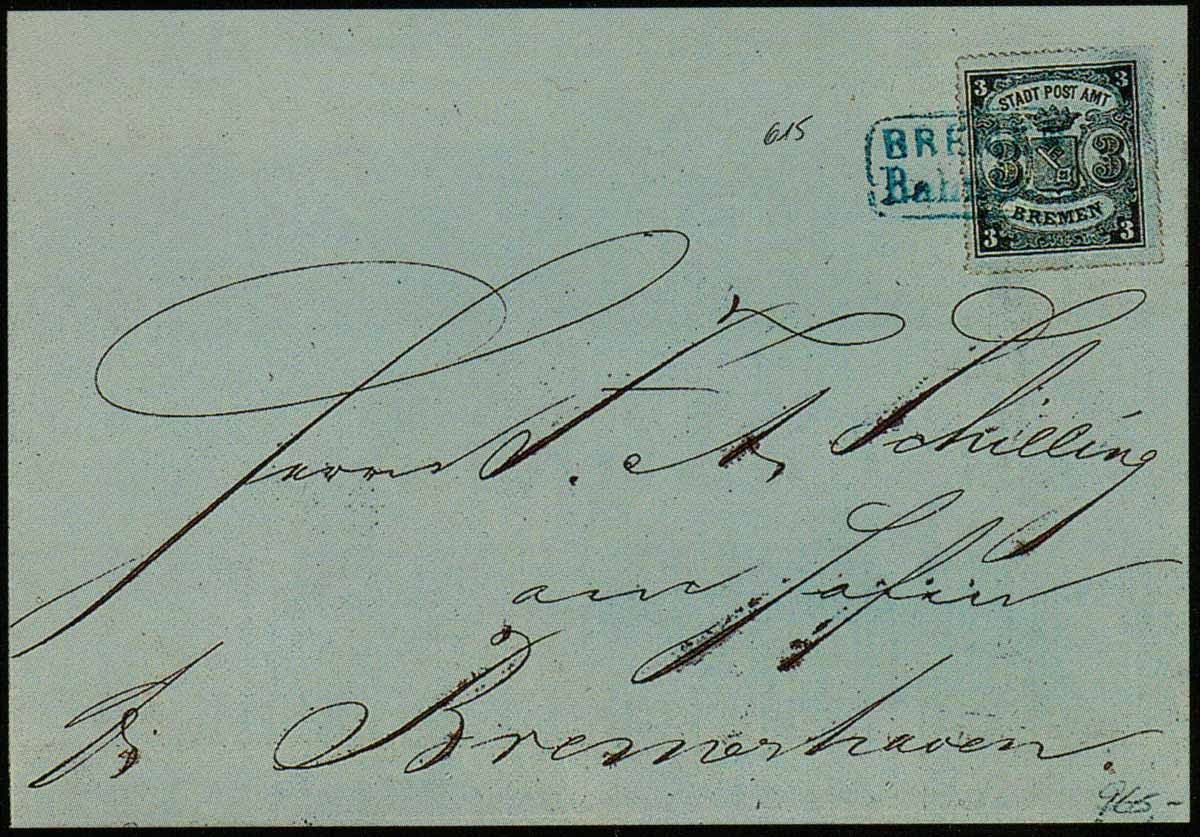 3 3
STADT POST AMT
615
BRE
3 3
Bah
BREMEN
3 3
Herrn F. A. Schilling
am Hafen
Bremerhaven.
965-